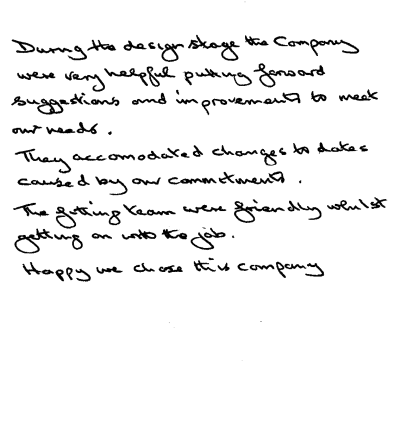 During the design stage the Company
were very helpful putting forward
suggestions and improvements to meet
our needs.
They accomodated changes to dates
caused by our commitments.
The fitting team were friendly whilst
getting on with the job.
Happy we chose this company